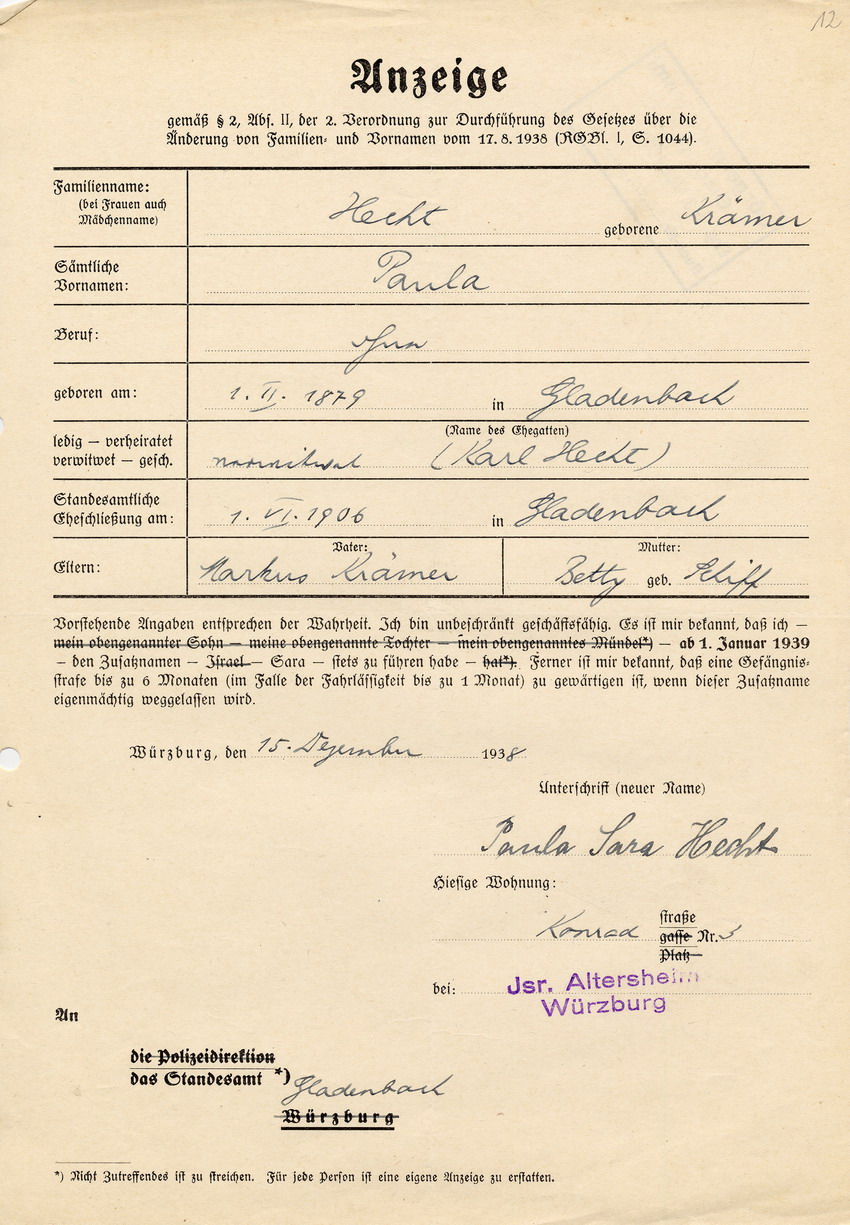 12
Anzeige
gemäß § 2, Abs. II, der 2. Verordnung zur Durchführung des Gesetzes über die
Änderung von Familien- und Vornamen vom 17. 8. 1938 (RGBl. I, S. 1044).
Familienname:
(bei Frauen auch
Mädchenname)
Hecht geborene Krämer
Sämtliche
Vornamen:
Paula
Beruf:
ohne
geboren am:
1. II. 1879 in Gladenbach
ledig — verheiratet
verwitwet — gesch.
(Name des Ehegatten)
verwitwet (Karl Hecht)
Standesamtliche
Eheschließung am:
1. VI. 1906 in Gladenbach
Eltern:
Vater:
Markus Krämer
Mutter:
Betty geb. Schiff
Vorstehende Angaben entsprechen der Wahrheit. Ich bin unbeschränkt geschäftsfähig. Es ist mir bekannt, daß ich —
mein obengenannter Sohn — meine obengenannte Tochter — mein obengenanntes Mündel*) — ab 1. Januar 1939
— den Zusatznamen — Israel — Sara — stets zu führen habe — hat*). Ferner ist mir bekannt, daß eine Gefängnis-
strafe bis zu 6 Monaten (im Falle der Fahrlässigkeit bis zu 1 Monat) zu gewärtigen ist, wenn dieser Zusatzname
eigenmächtig weggelassen wird.
Würzburg, den 15. Dezember 1938
Unterschrift (neuer Name)
Paula Sara Hecht
Hiesige Wohnung:
Konrad straße
gasse Nr. 3
Platz
bei: Jsr. Altersheim
Würzburg
An
die Polizeidirektion
das Standesamt *)
Gladenbach
Würzburg
*) Nicht Zutreffendes ist zu streichen. Für jede Person ist eine eigene Anzeige zu erstatten.